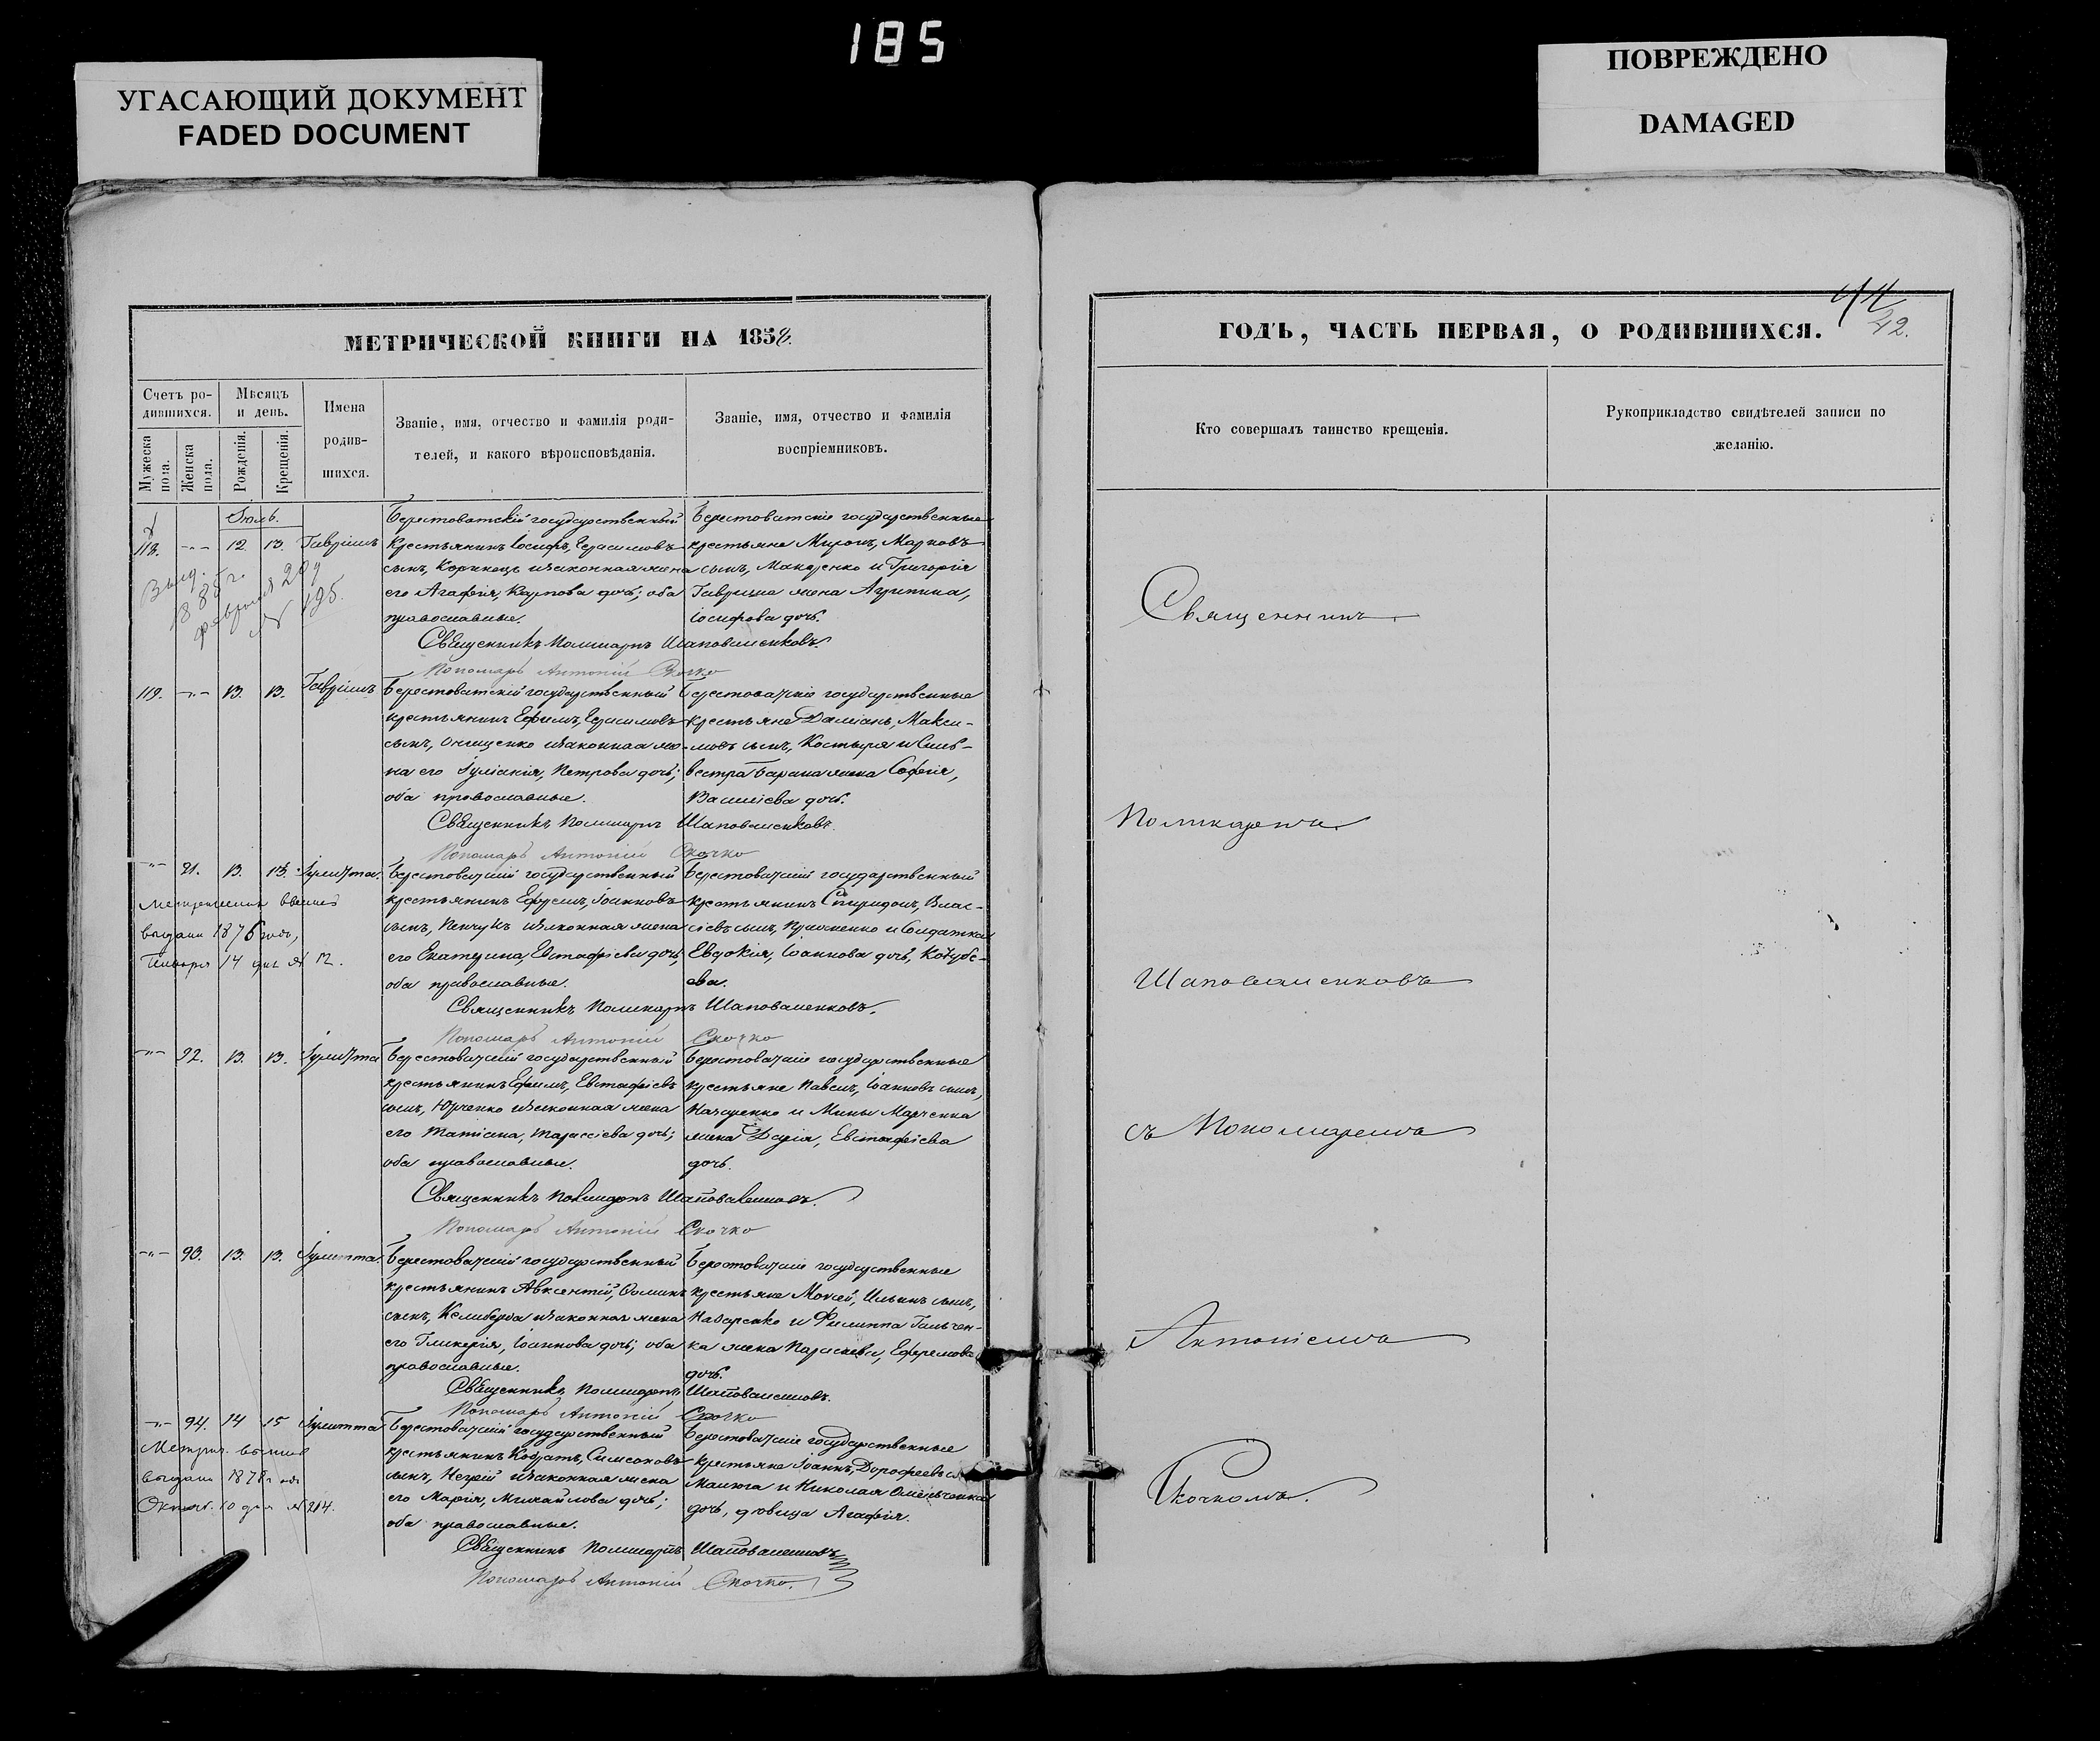 185
УГАСАЮЩИЙ ДОКУМЕНТ
FADED DOCUMENT
ПОВРЕЖДЕНО
DAMAGED
МЕТРИЧЕСКОЙ КНИГИ НА 1858.
Счетъ ро-
дившихся.
Мѣсяцъ
и день.
Мужеска
пола.
Женска
пола.
Рожденія.
Крещенія.
Имена
родив-
шихся.
Званіе, имя, отчество и фамилія роди-
телей, и какого вѣроисповѣданія.
Званіе, имя, отчество и фамилія
воспріемниковъ.
Іюль.
118. -"- 12. 13. Гавріилъ
Берестоватскій государственный
крестьянинъ Іосифъ, Герасимовъ
сынъ, изаконная жена
его Агафія, Карпова дочь; оба
православные.
Берестоватскіе государственные
крестьяне Миронъ, Марковъ
сынъ, Макаренко и Григорія
Гаврыша жена Агрипина,
Іосифова дочь.
Священникъ Поликарпъ Шаповаленковъ.
Пономарь Антоній Скочко
Выд.
1885 г.
февраля 20 д
№ 195.
119. -"- 13. 13. Гавріилъ
Берестоватскій государственный
крестьянинъ Ефимъ, Герасимовъ
сынъ, Онищенко изаконная же-
на его Іуліанія, Петрова дочь;
оба православные.
Берестоватскіе государственные
крестьяне Даміанъ, Макси-
мовъ сынъ, Костыря и Силь-
вестра Барана жена Софія,
Василіева дочь.
Священникъ Поликарпъ Шаповаленковъ.
Пономарь Антоній Скочко
-"- 91. 13. 13. Іулитта.
Берестоватскій государственный
крестьянинъ Ефремъ, Іоанновъ
сынъ, изаконная жена
его Екатерина, Евстафіева дочь,
оба православные.
Берестоватскій государственный
крестьянинъ Спиридонъ, Влас-
іевъ сынъ, и Солдатка
Евдокія, Іоаннова дочь, Кочубе-
ева.
выдана 1876 года,
Января 14 дня № 12.
Священникъ Поликарпъ Шаповаленковъ.
Пономарь Антоній Скочко
-"- 92. 13. 13. Іулитта
Берестоватскій государственный
крестьянинъ Ефимъ, Евстафіевъ
сынъ, Юрченко изаконная жена
его Татіана, Тарасіева дочь;
оба православные.
Берестоватскіе государственные
крестьяне Павелъ, Іоанновъ сынъ,
Назаренко и Мины Марченка
жена Дарія, Евстафіева
дочь.
Священникъ Поликарпъ Шаповаленковъ.
Пономарь Антоній Скочко
-"- 93. 13. 13. Іулитта.
Берестоватскій государственный
крестьянинъ Авксентій, Ѳоминъ
сынъ, Келиберда изаконная жена
его Гликерія, Іоаннова дочь; оба
православные.
Берестоватскіе государственные
крестьяне Моѵсей, Ильинъ сынъ,
Назаренко и Филиппа Гальчен-
ка жена Параскева, Ефремова
дочь.
Священникъ Поликарпъ Шаповаленковъ.
Пономарь Антоній Скочко
-"- 94. 14 15 Іулитта
Берестоватскій государственный
крестьянинъ Кодратъ, Симеоновъ
сынъ, Негрій изаконная жена
его Марія, Михайлова дочь;
оба православные.
Берестоватскіе государственные
крестьяне Іоаннъ, Дорофеевъ
Малюга и Николая Омельченка
дочь, дѣвица Агафія.
Метрич.
выдана 1878 года
Октяб. 10 дня № 214.
Священникъ Поликарпъ Шаповаленковъ
Пономарь Антоній Скочко.
ГОДЪ, ЧАСТЬ ПЕРВАЯ, О РОДИВШИХСЯ.
42.
Кто совершалъ таинство крещенія.
Рукоприкладство свидѣтелей записи по
желанію.
Священникъ
Поликарпъ
Шаповаленковъ
съ Пономаремъ
Антоніемъ
Скочкомъ.